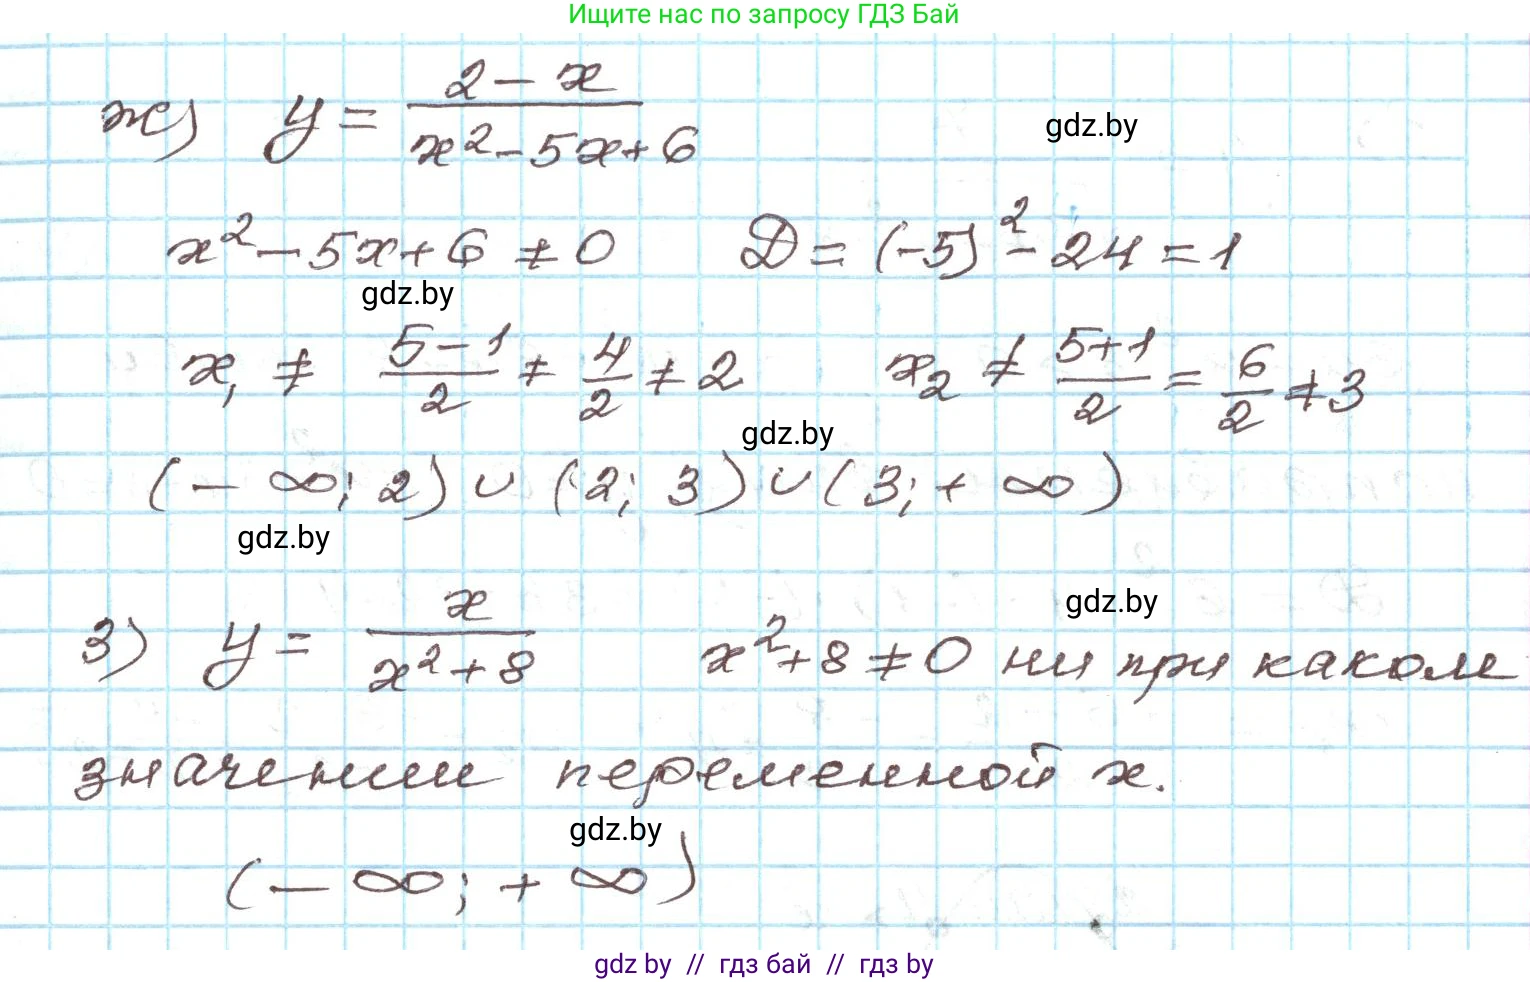 Ищите нас по запросу ГДЗ Бай
ж) y = (2 - x)/(x² - 5x + 6)
gdz.by
x² - 5x + 6 ≠ 0 D = (-5)² - 24 = 1
gdz.by
x₁ ≠ (5 - 1)/2 ≠ 4/2 ≠ 2 x₂ ≠ (5 + 1)/2 = 6/2 ≠ 3
gdz.by
(- ∞; 2) ∪ (2; 3) ∪ (3; + ∞)
gdz.by
gdz.by
з) y = x/(x² + 8) x² + 8 ≠ 0 ни при каком
значении переменной x.
gdz.by
(- ∞; + ∞)
gdz by // гдз бай // гдз by